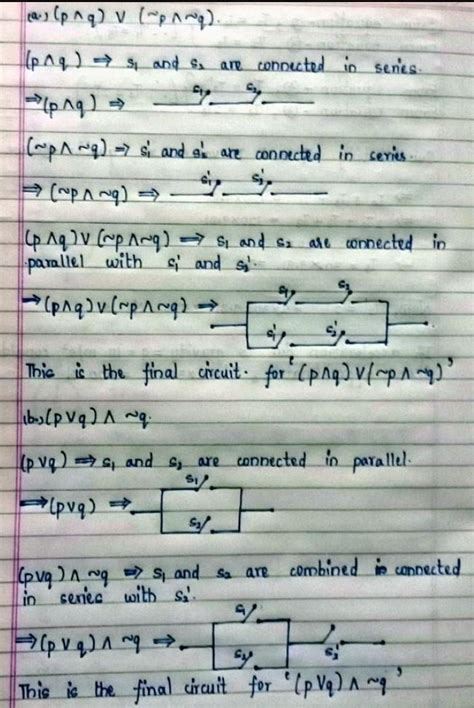 (a) (p ∧ q) ∨ (~p ∧ ~q).
(p ∧ q) ⟹ s₁ and s₂ are connected in series.
⟹ (p ∧ q) ⟹ s₁ s₂
(~p ∧ ~q) ⟹ s₁' and s₂' are connected in series.
⟹ (~p ∧ ~q) ⟹ s₁' s₂'
(p ∧ q) ∨ (~p ∧ ~q) ⟹ s₁ and s₂ are connected in
parallel with s₁' and s₂'.
⟹ (p ∧ q) ∨ (~p ∧ ~q) ⟹ s₁ s₂
s₁' s₂'
This is the final circuit. for '(p ∧ q) ∨ (~p ∧ ~q)'
(b) (p ∨ q) ∧ ~q.
(p ∨ q) ⟹ s₁ and s₂ are connected in parallel.
⟹ (p ∨ q) ⟹ s₁
s₂
(p ∨ q) ∧ ~q ⟹ s₁ and s₂ are combined connected
in series with s₂'.
⟹ (p ∨ q) ∧ ~q ⟹ s₁
s₂ s₂'
This is the final circuit for '(p ∨ q) ∧ ~q'